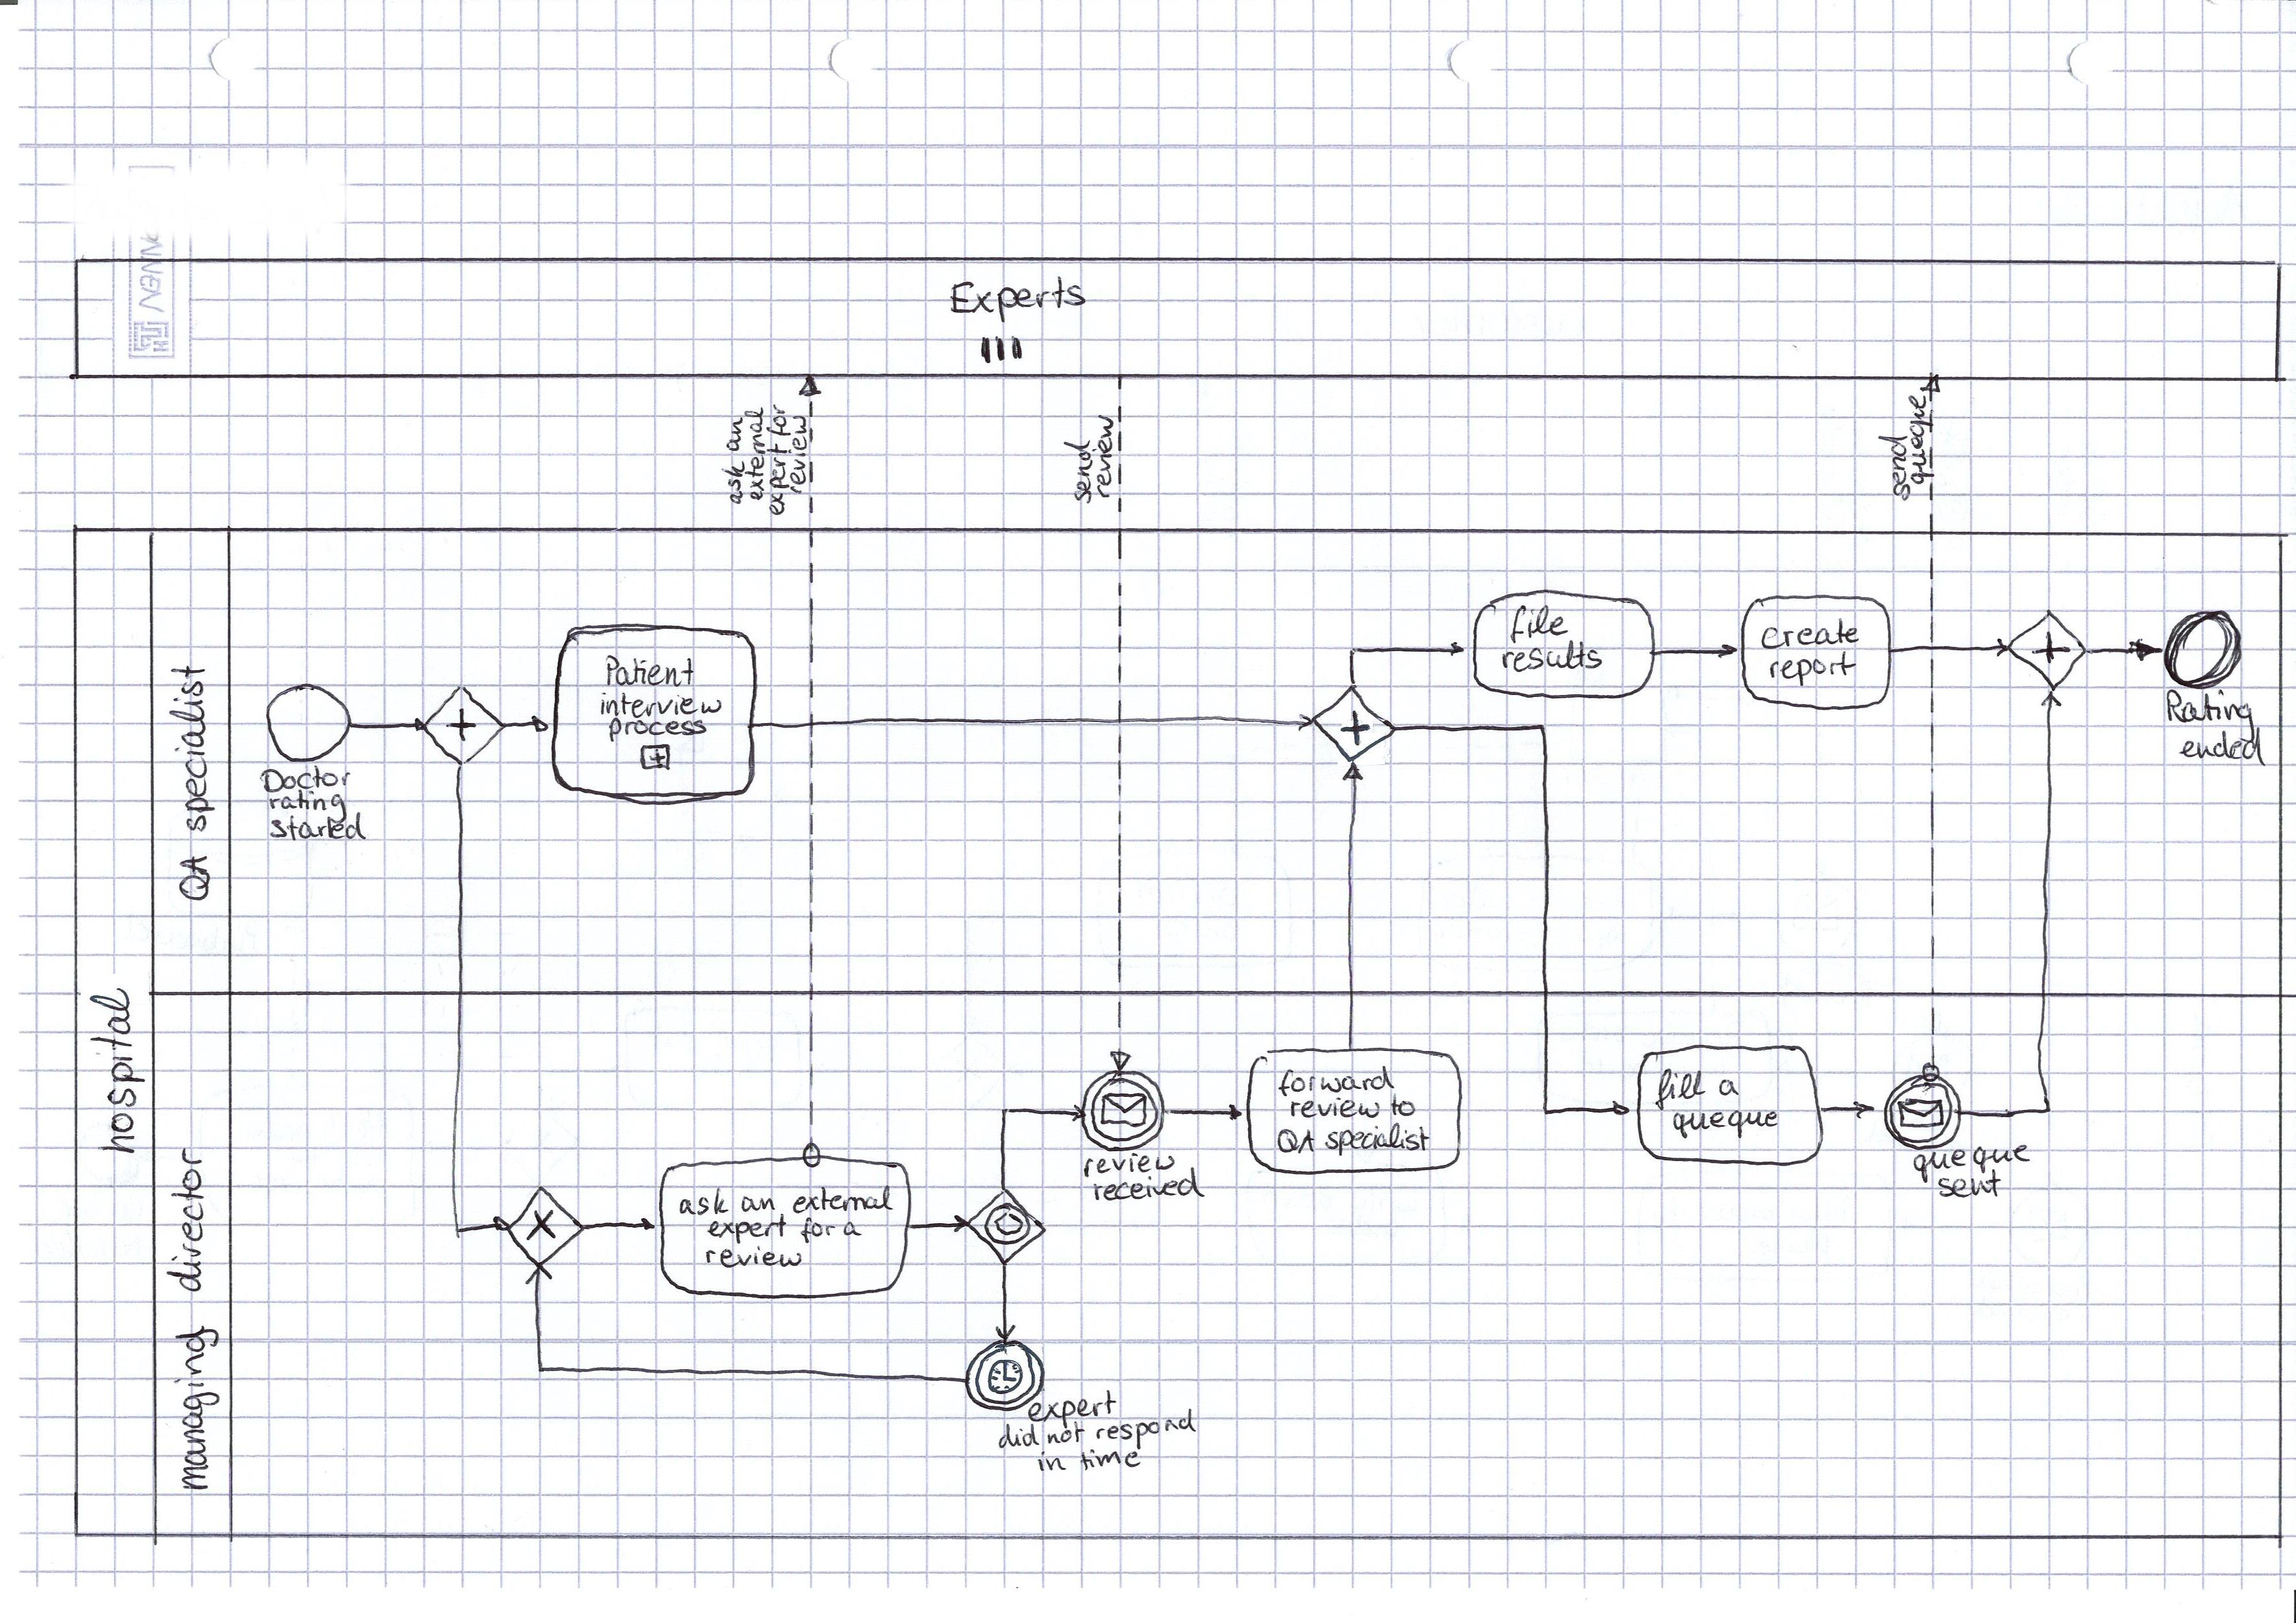 Experts
ask an
external
expert for
review
send
review
send
queque
hospital
QA specialist
managing director
Doctor
rating
started
Patient
interview
process
file
results
create
report
Rating
ended
ask an external
expert for a
review
review
received
expert
did not respond
in time
forward
review to
QA specialist
fill a
queque
queque
sent